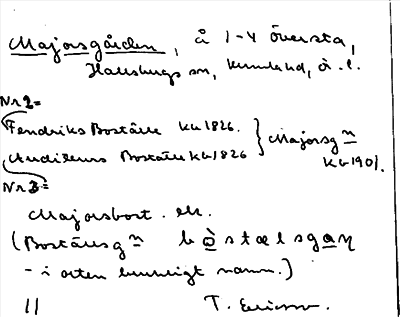 Majorsgården, å 1-4 Översta,
Hallsbergs sn, Kumla hd, Ö.l.
Nr 2=
Fendriks Boställe KU 1826. } Majorsgn
Auditeurs Boställe KU 1826 KU 1901.
Nr 3=
Majorsbost. 
(Boställsgn bòstælsgaη
- i orten namn.)
11 T. Ericsson.